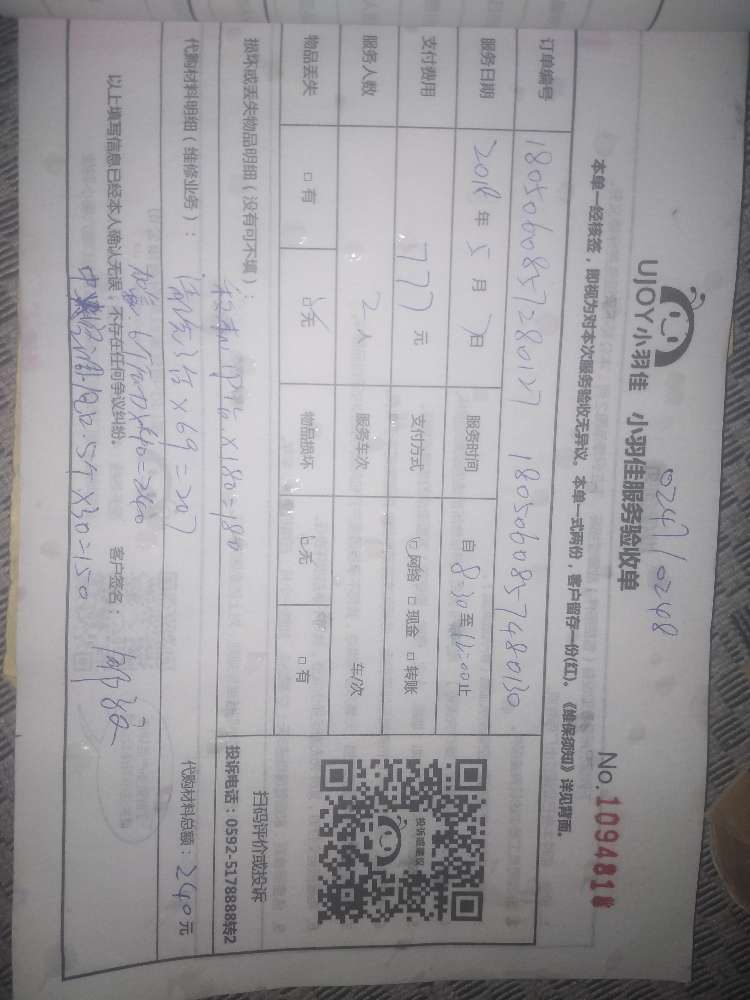 0247/0248
UJOY小羽佳 小羽佳服务验收单
No.1094818
本单一经核签，即视为对本次服务验收无异议。本单一式两份，客户留存一份(红)。《维保须知》详见背面。
订单编号 1805060857280127 1805060857480130
服务日期 2018年5月7日 服务时间 自8:30至12:00止
支付费用 777元 支付方式 网络 □现金 □转账
服务人数 2人 服务车次 车/次
物品丢失 □有 无 物品损坏 无 □有
快拆箱建议
扫码评价或投诉
投诉电话：0592-5178888转2
损坏或丢失物品明细（没有可不填）：
×180=180
代购材料明细（维修业务）：
×69=207
代购材料总额：240元
加氟 ×40=240
以上填写信息已经本人确认无误，不存在任何争议纠纷。 客户签名：
×30=150